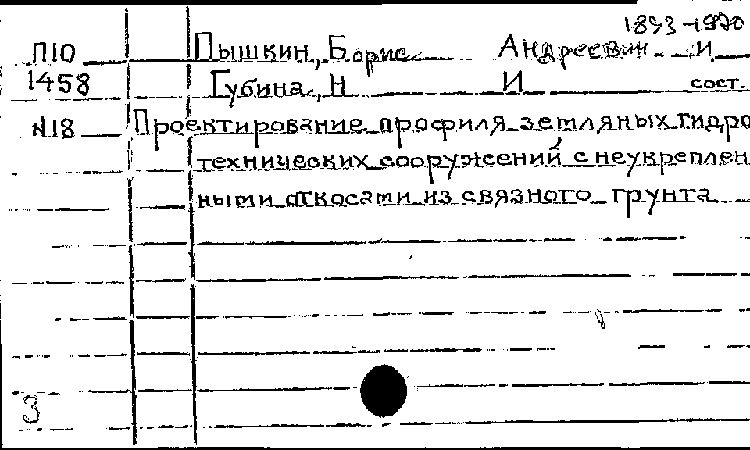 1893-1970
П10 Пышкин, Борис Андреевич. и
1458 Губина, Н И сост.
№18 Проектирование профиля земляных гидро
технических сооружений с неукреплен
ными откосами из связного грунта
З